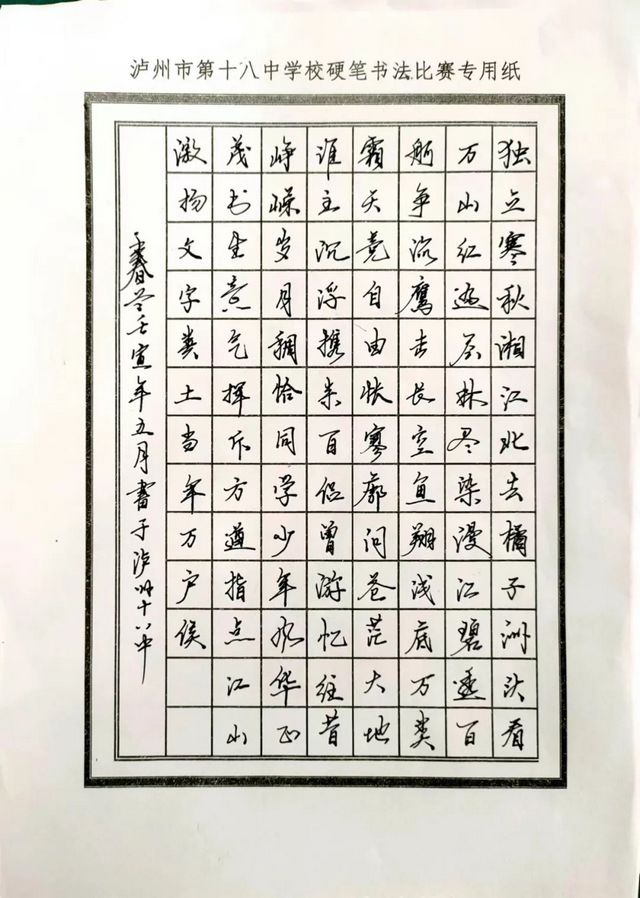 泸州市第十八中学校硬笔书法比赛专用纸
独立寒秋湘江北去橘子洲头看
万山红遍层林尽染漫江碧透百
舸争流鹰击长空鱼翔浅底万类
霜天竞自由怅寥廓问苍茫大地
谁主沉浮携来百侣曾游忆往昔
峥嵘岁月稠恰同学少年风华正
茂书生意气挥斥方遒指点江山
激扬文字粪土当年万户侯
春壬寅年五月書于泸州十八中